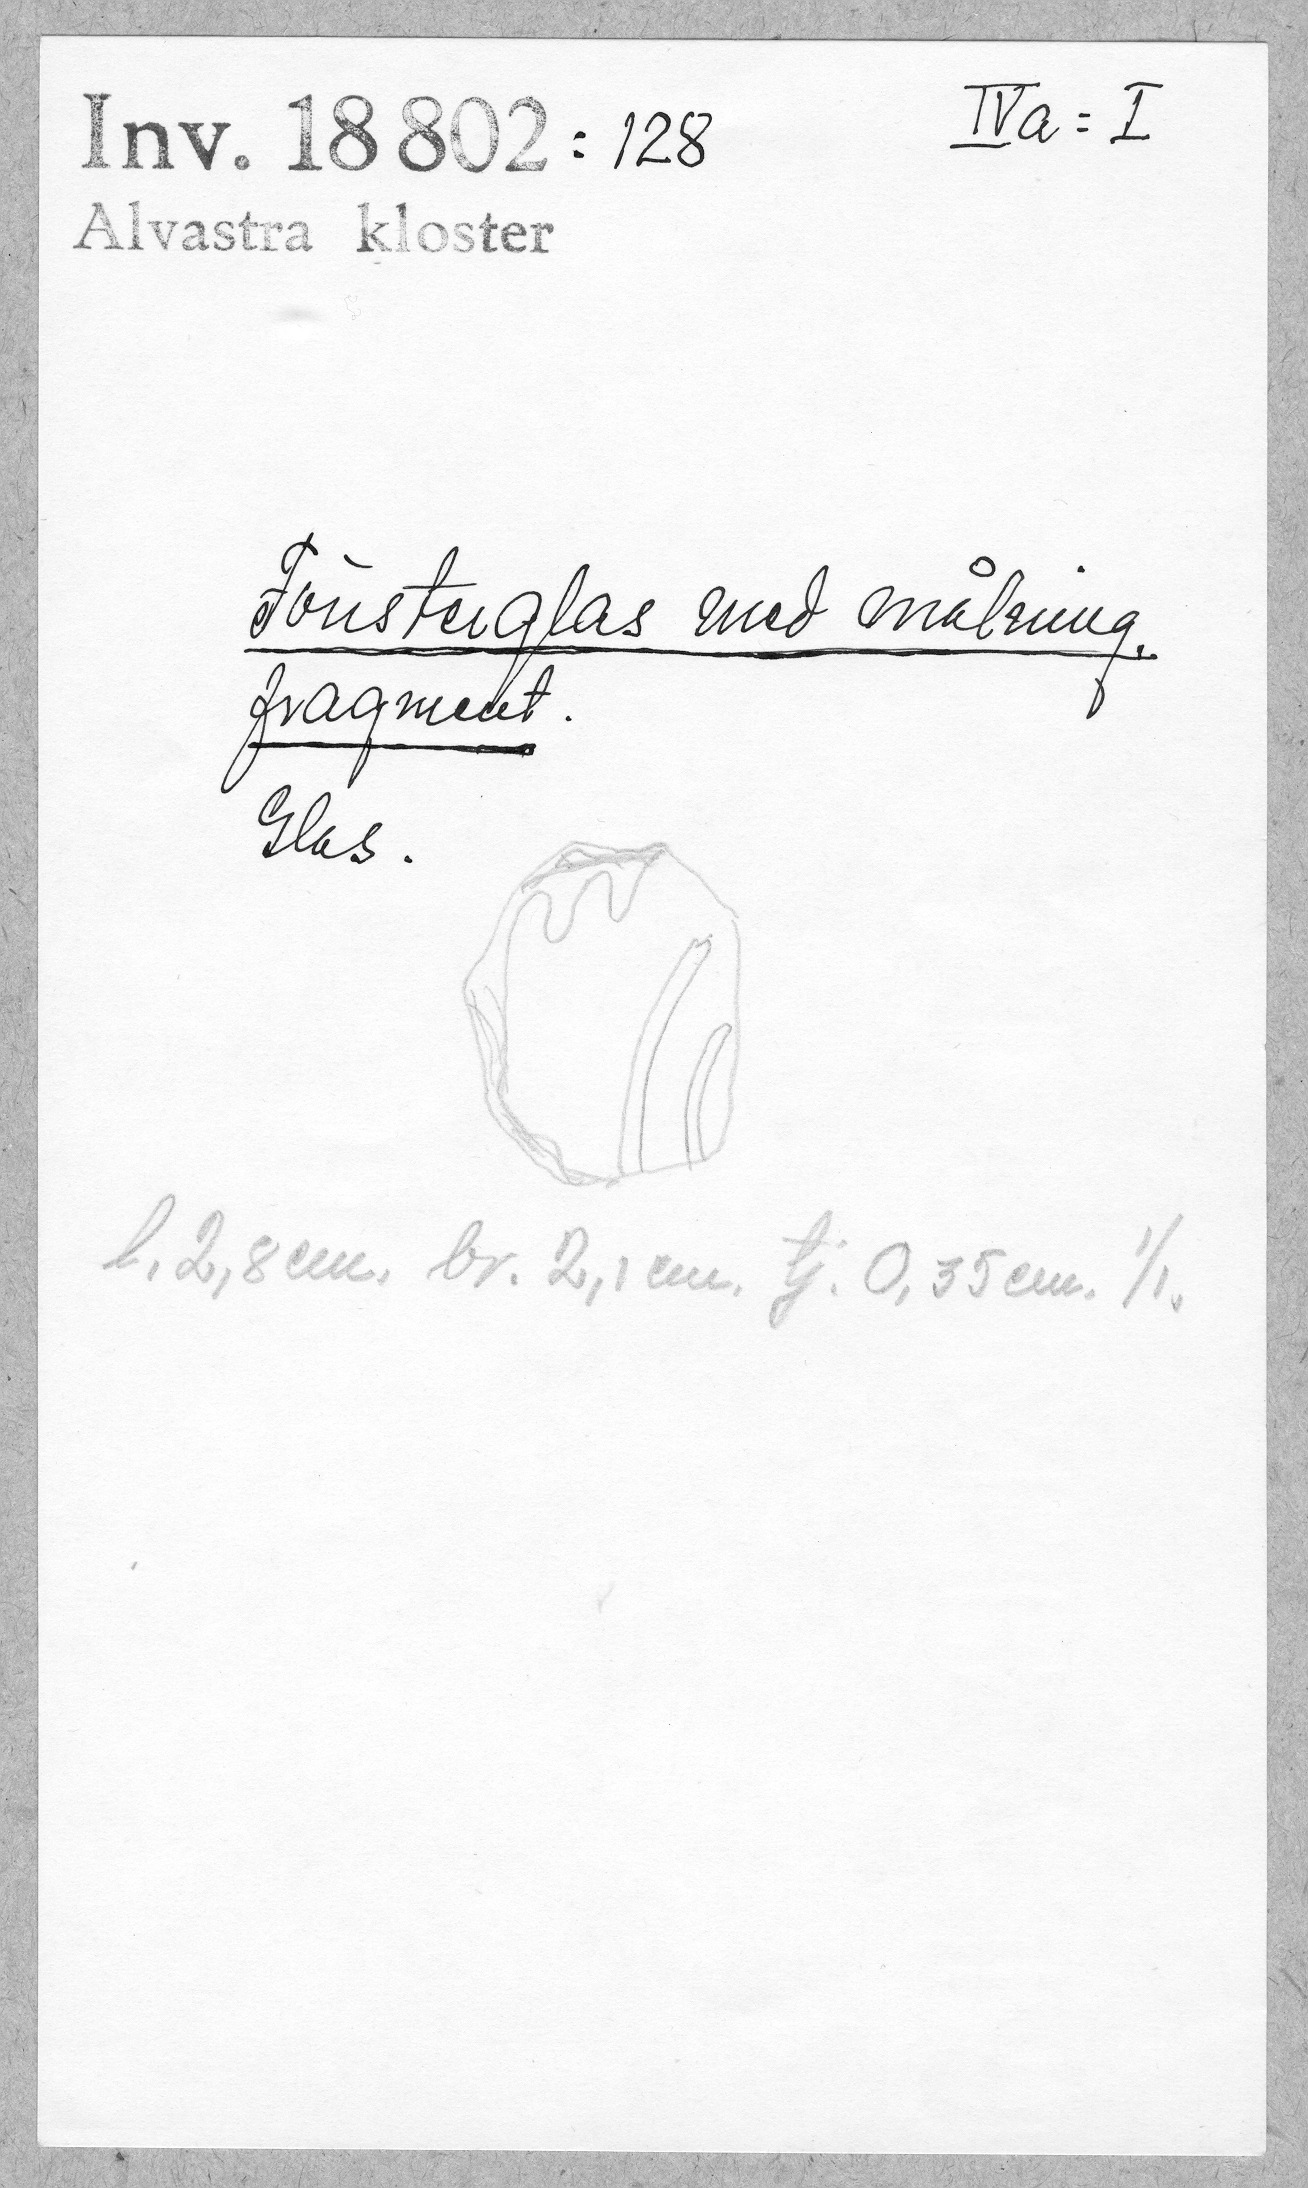 Inv. 18 802 : 128 IVa = I
Alvastra kloster
Fönsterglas med målning,
fragment.
Glas.
l. 2,8 cm. br. 2,1 cm. tj. 0,35 cm. 1/1.